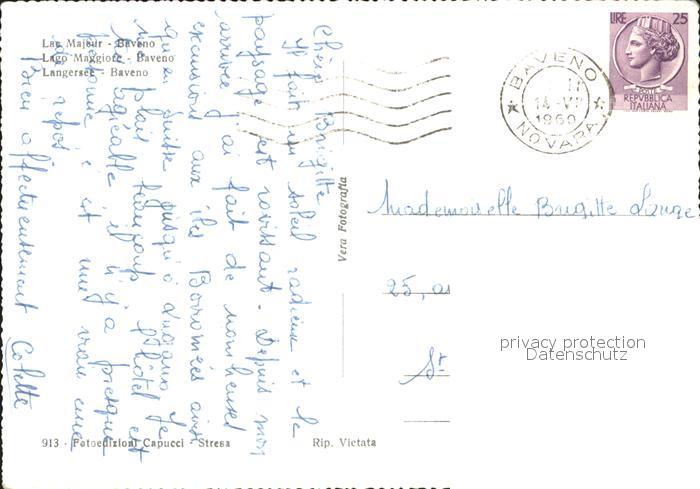 Lac Majeur - Baveno
Lago Maggiore - Baveno
Langersee - Baveno
Chère Brigitte
Il fait un soleil radieux et le
paysage est ravissant. Depuis mon
arrivée j'ai fait de nombreuses
excursions aux îles Borromées ainsi
qu'en Suisse jusqu'à Lugano. Je
me plais beaucoup l'hôtel est
très agréable il n'y a presque
personne c'est une vraie cure
de repos
Bien affectueusement Colette
Vera Fotografia
913 - Fotoedizioni Capucci - Stresa
Rip. Vietata
LIRE 25
POSTE
REPVBBLICA
ITALIANA
BAVENO
14 VII
1960
NOVARA
Mademoiselle Brigitte
25, a
St
privacy protection
Datenschutz